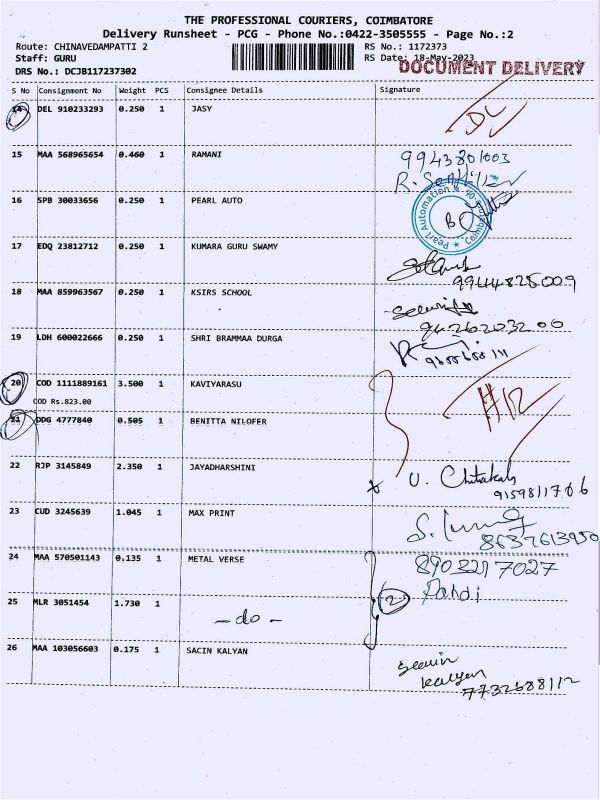 THE PROFESSIONAL COURIERS, COIMBATORE
Delivery Runsheet - PCG - Phone No.:0422-3505555 - Page No.:2
Route: CHINAVEDAMPATTI 2 RS No.: 1172373
Staff: GURU RS Date: 18-May-2023
DRS No.: DCJB117237302 DOCUMENT DELIVERY
S No Consignment No Weight PCS Consignee Details Signature
14 DEL 910233293 0.250 1 JASY DL
15 MAA 568965654 0.460 1 RAMANI 9943801003
16 SPB 30033656 0.250 1 PEARL AUTO Pearl Automation Coimbatore
17 EDQ 23812712 0.250 1 KUMARA GURU SWAMY 9944825009
18 MAA 859963567 0.250 1 KSIRS SCHOOL Security
9426203200
19 LDH 600022666 0.250 1 SHRI BRAMMAA DURGA
20 COD 1111889161 3.500 1 KAVIYARASU
COD Rs.823.00
21 DDG 4777840 0.505 1 BENITTA NILOFER
22 RJP 3145849 2.350 1 JAYADHARSHINI U. Chitrakala
9159811706
23 CUD 3245639 1.045 1 MAX PRINT
8637613950
24 MAA 570501143 0.135 1 METAL VERSE 8903217027
Pandi
25 MLR 3051454 1.730 1 - do - 2
26 MAA 103056603 0.175 1 SACIN KALYAN
kalyan
7732688112